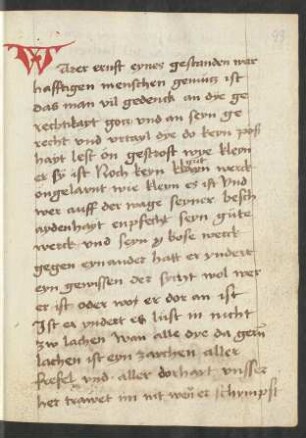 Warer ernst eynes gestanden war
hafftigen menschen gemütz ist
das man vil gedenck an dye ge
rechtikayt gotz vnd an seyn ge
recht vnd vrtayl dye do keyn poß
hayt lest on gestroft wye kleyn
er sy ist Noch keyn klayn gut werck
ongelarnt wie kleyn es ist Vnd
wer auff der wage seyner besch
aydenhayt enpfecht seyn güte
werck vnd seyn bose werck
gegen eynander hatt er yndert
eyn gewissen der sycht wol wer
er ist oder wo er dor an ist
Ist er yndert es lust in nicht
zw lachen Wan alle dye da gern
lachen ist eyn zaychen aller
frefel vnd aller dorhayt vnsser
her trawet im nit wen er schympft